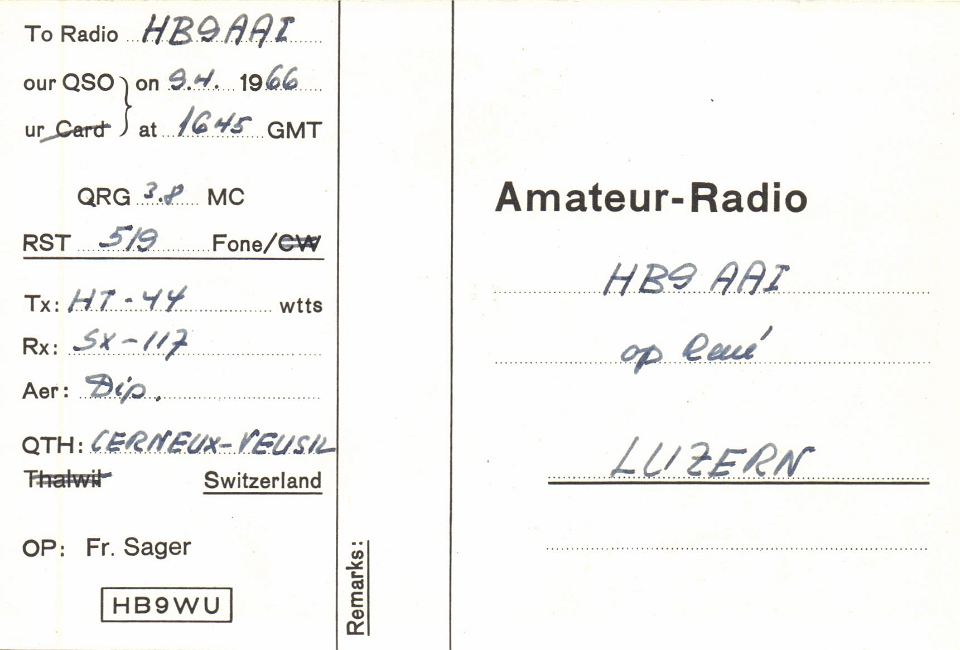 To Radio HB9AAI
our QSO } on 9.4. 1966
ur Card } at 1645 GMT
QRG 3.8 MC
RST 519 Fone/CW
Tx: HT-44 wtts
Rx: SX-117
Aer: Dip.
QTH: CERNEUX-VEUSIL
Thalwil Switzerland
OP: Fr. Sager
HB9WU
Remarks:
Amateur-Radio
HB9 AAI
op René
LUZERN